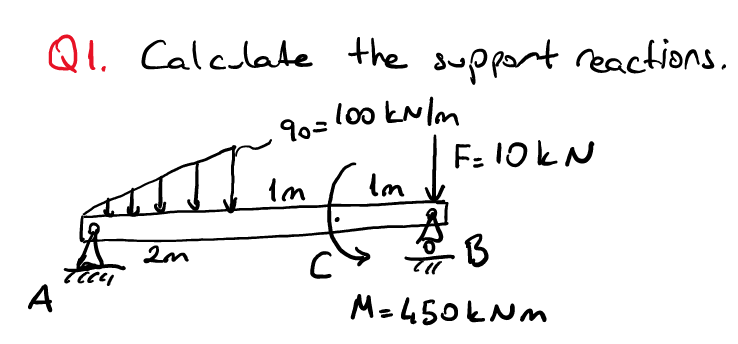 Q1. Calculate the support reactions.
q0=100 kN/m
F=10kN
1m
1m
2m
C
B
A
M=450kNm